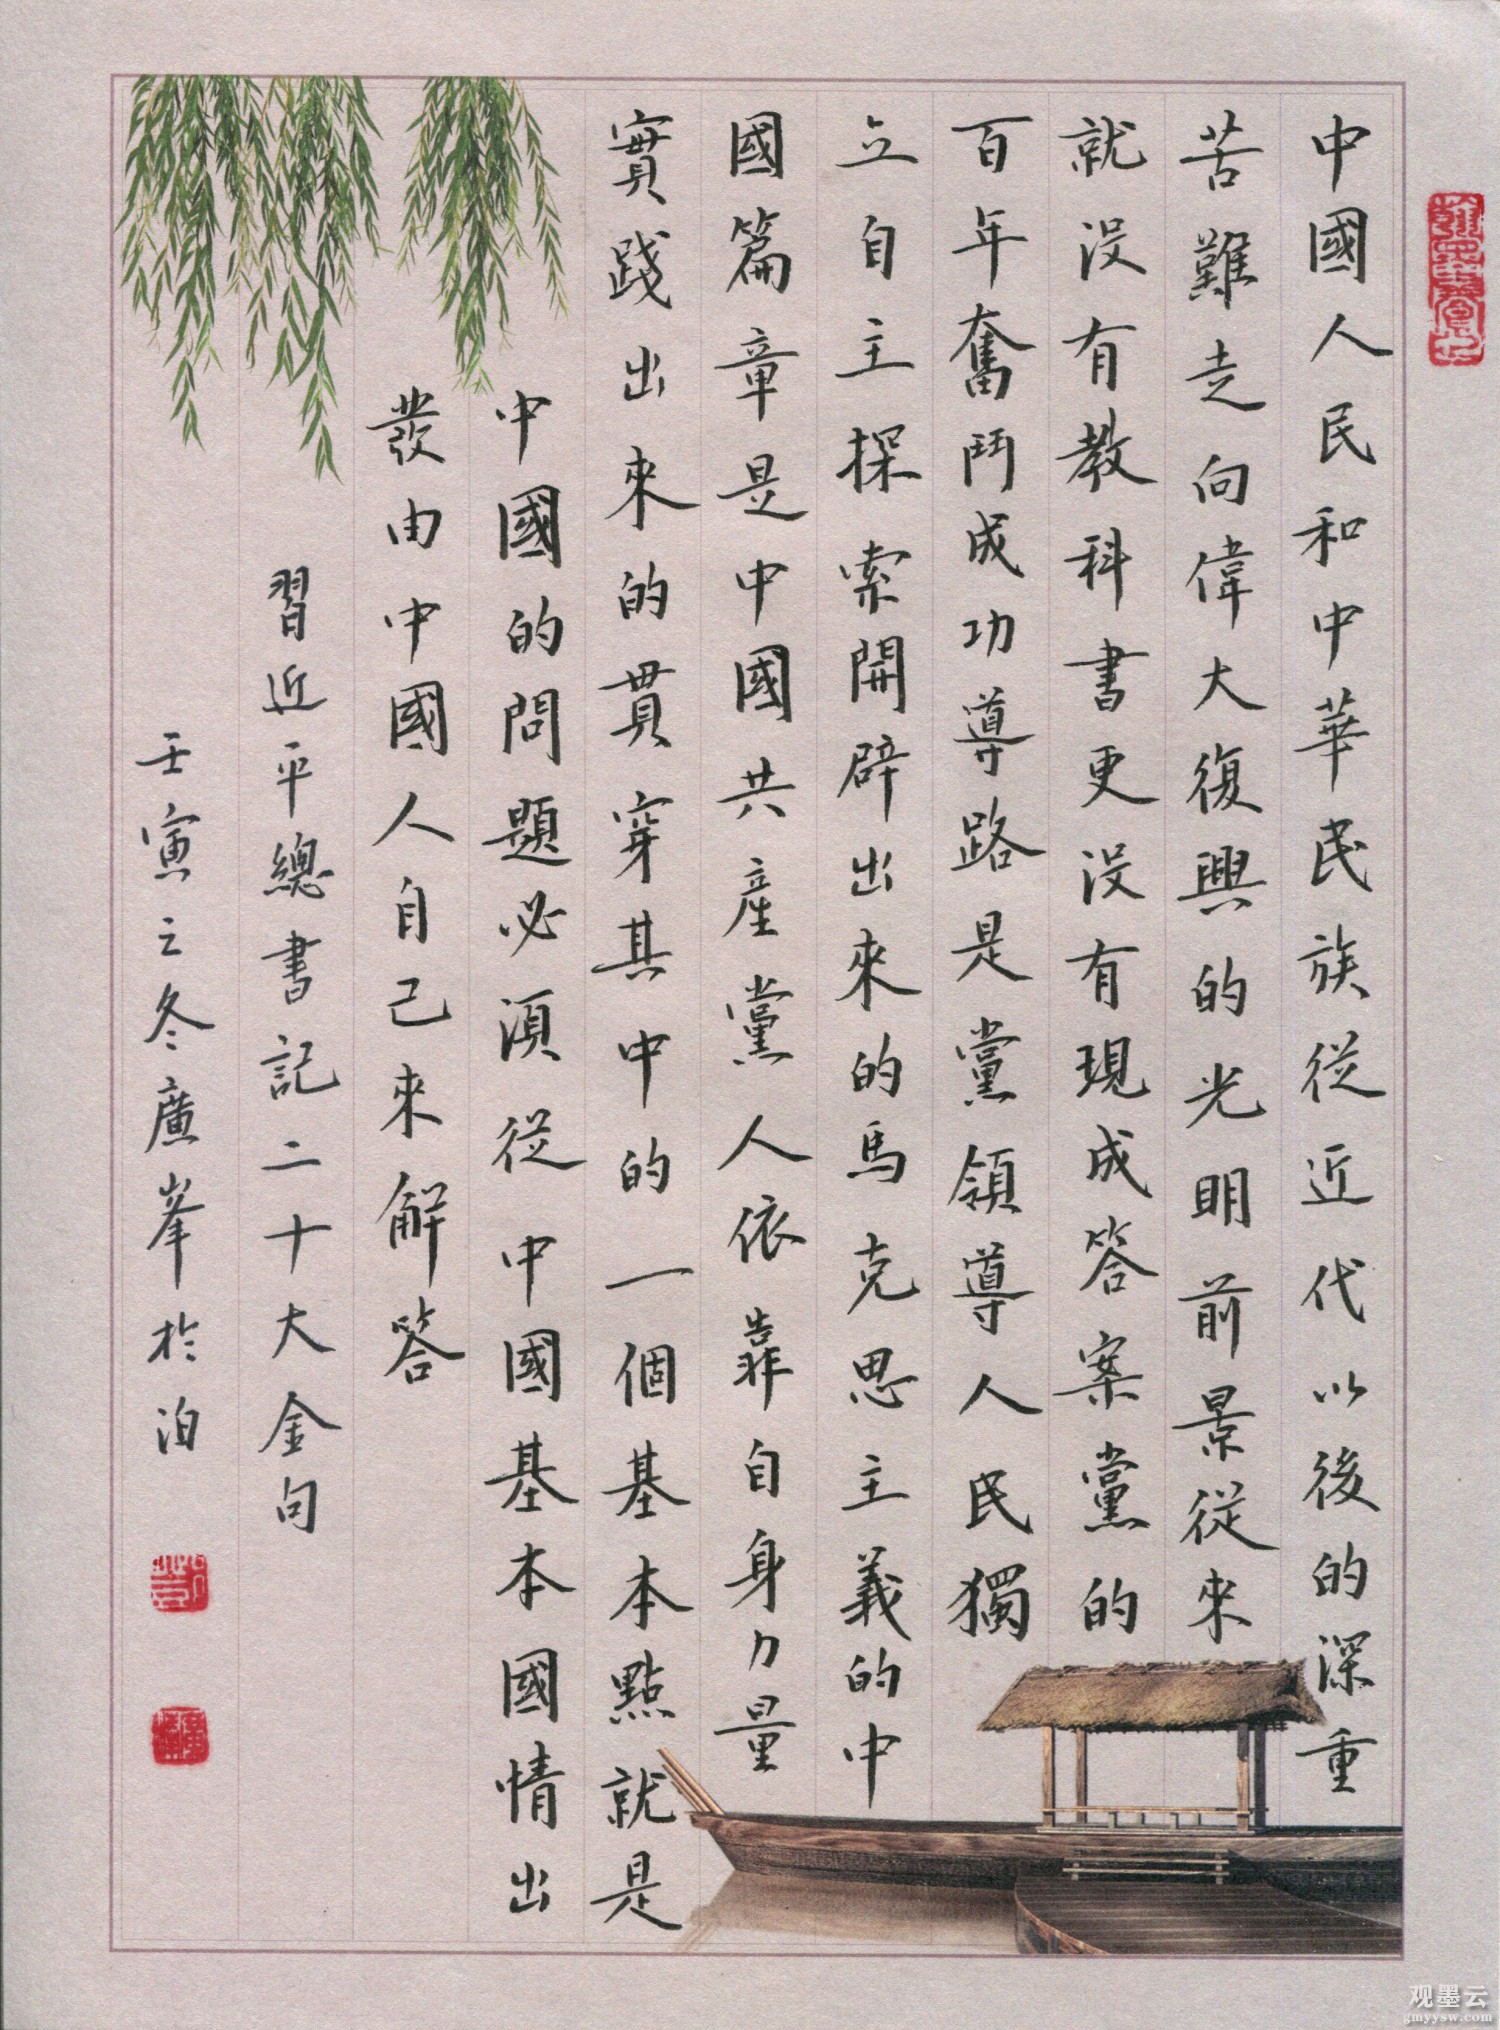 中國人民和中華民族從近代以後的深重
苦難走向偉大復興的光明前景從來
就没有教科書更没有現成答案黨的
百年奮鬥成功導路是黨領導人民獨
立自主探索開辟出來的馬克思主義的中
國篇章是中國共產黨人依靠自身力量
實踐出來的貫穿其中的一個基本點就是
中國的問題必須從中國基本國情出
發由中國人自己來解答
習近平總書記二十大金句
壬寅之冬廣峯於泊
观墨云
gmyysw.com